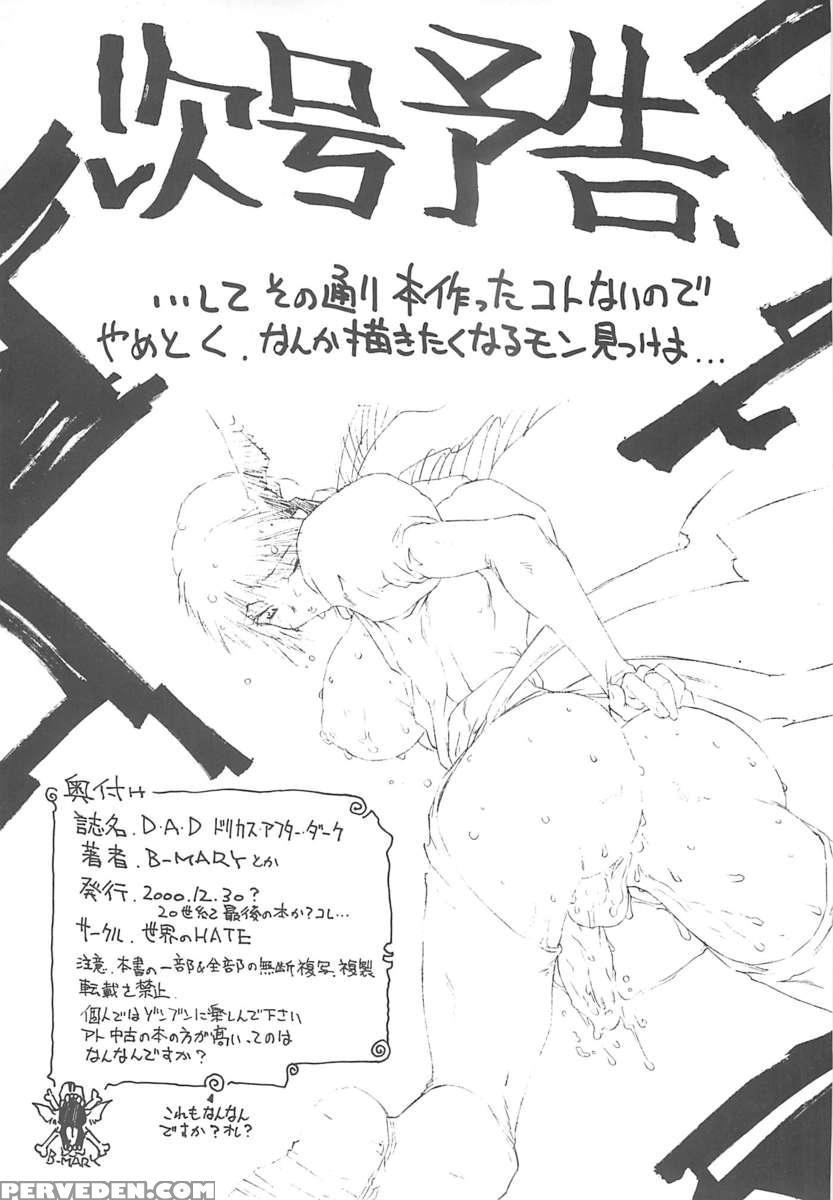 次号予告、
...して その通り 本作ったコトないので
やめとく. なんか描きたくなるモン見つけま...
奥付け
誌名. D・A・D ドリカス・アフター・ダーク
著者. B-MARYとか
発行. 2000.12.30?
20世紀 最後の本か?コレ...
サークル. 世界のHATE
注意. 本書の一部&全部の無断複写、複製
転載を禁止.
個人ではゾンブンに楽しんで下さい
アト 中古の本の方が高いってのは
なんなんですか?
これもなんなん
ですか?オレ?
B-MARY
PERVEDEN.COM